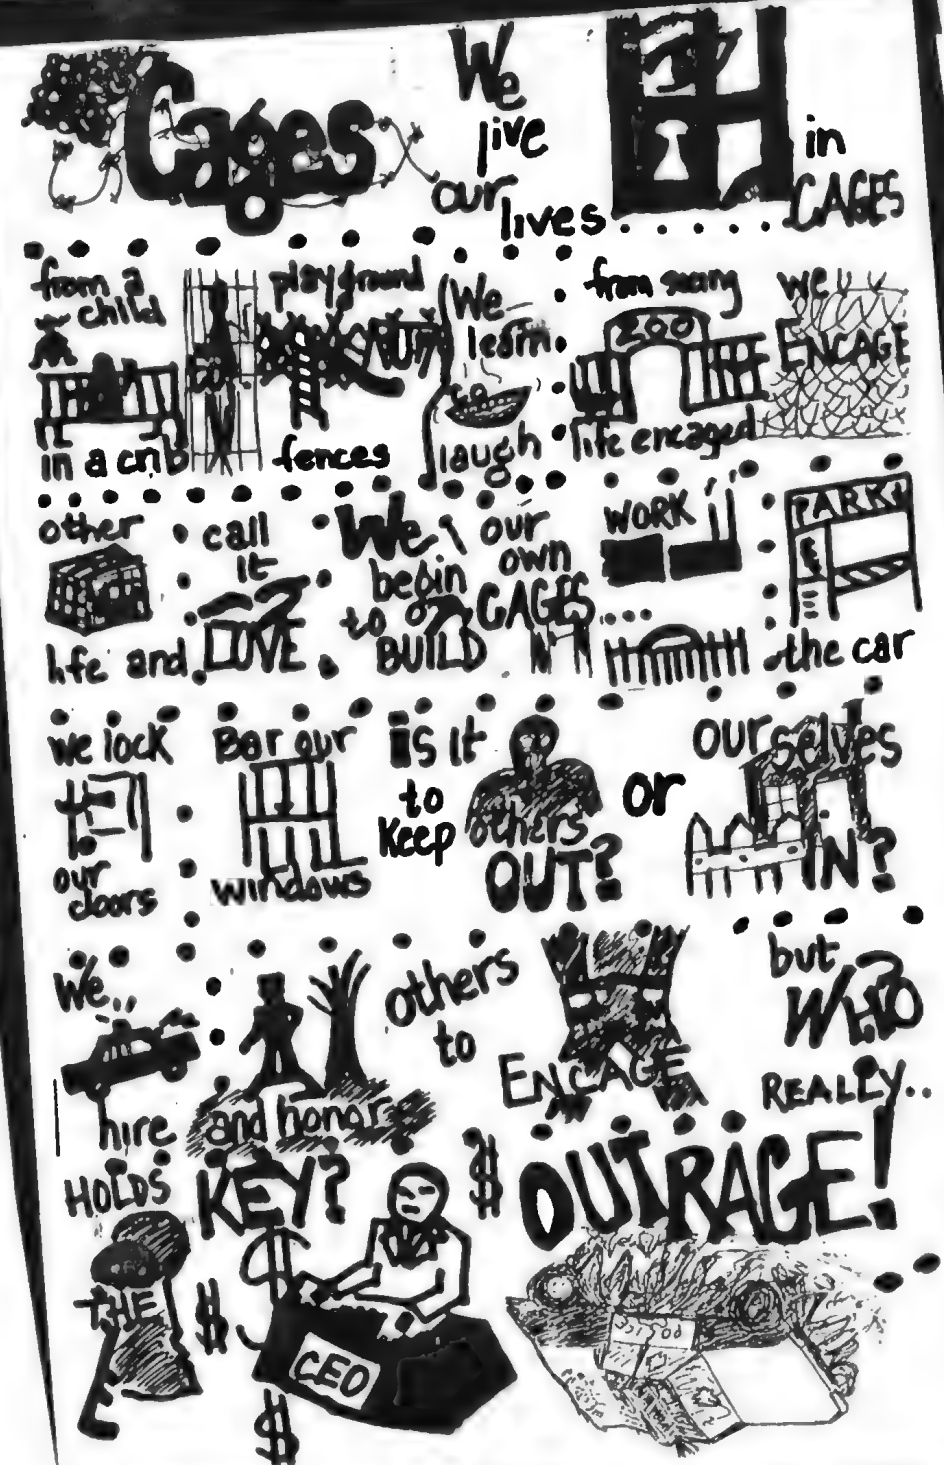 Cages
We
live
our
lives......
in
CAGES
from a
child
in a crib
playground
fences
We
learn
to
laugh
from seeing
ZOO
life encaged
we
ENCAGE
other
life and
call
it
LOVE
We
begin
to
BUILD
our
own
CAGES...
WORK
PARK
the car
we lock
our
doors
Bar our
windows
is it
to
Keep
others
OUT?
or
ourselves
IN?
We..
hire
and honor
others
to
ENCAGE
but
WHO
REALLY..
HOLDS
THE
KEY?
$
$
$
$
CEO
OUTRAGE!